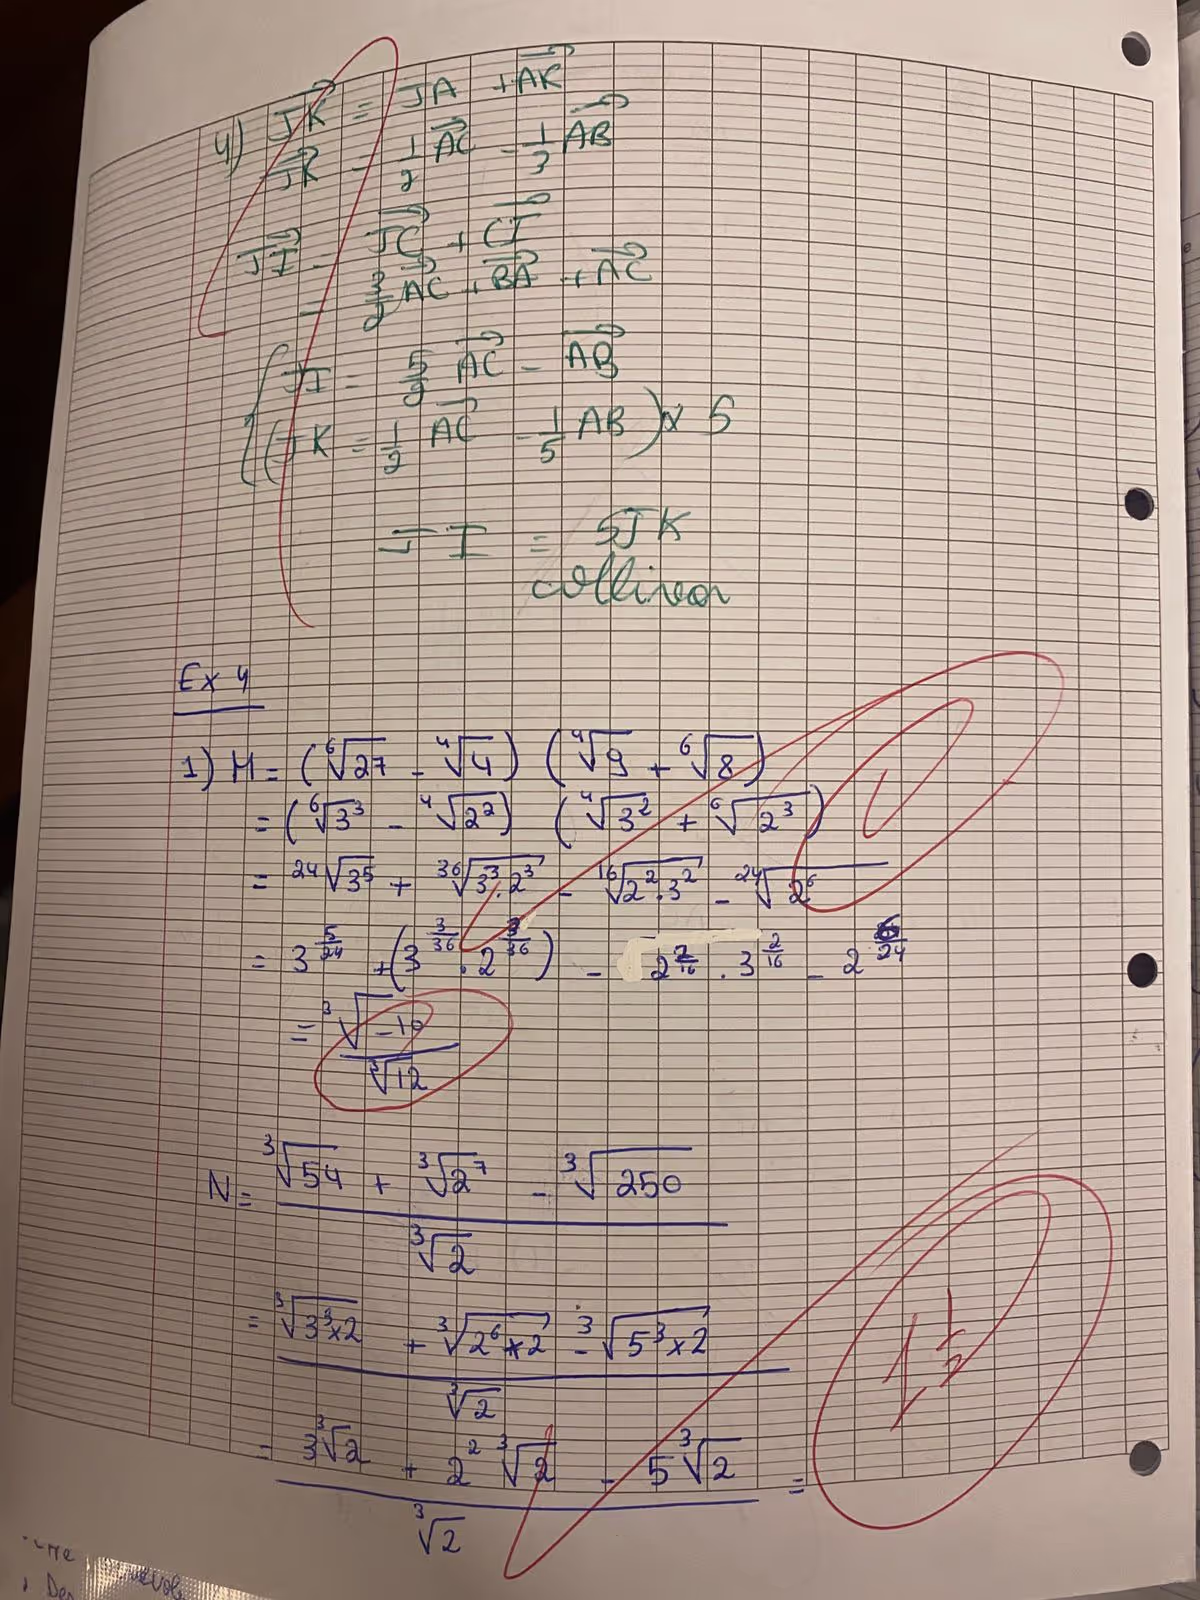 4) JK = JA + AK
JK = 1/2 AC - 1/3 AB
JI = JC + CI
= 3/2 AC + BA + AC
JI = 5/2 AC - AB
(JK = 1/2 AC - 1/5 AB) x 5
JI = 5JK
collinear
Ex 4
1) M = (⁶√27 - ⁴√4) (⁴√9 + ⁶√8)
= (⁶√3³ - ⁴√2²) (⁴√3² + ⁶√2³)
= ²⁴√3⁵ + ³⁶√3³.2³ - ¹⁶√2².3² - ²⁴√2⁶
= 3^5/24 + (3^3/36 . 2^3/36) - 2^2/16 . 3^2/16 - 2^6/24
= ³√-10 / ³√12
N = ³√54 + ³√2⁷ - ³√250
³√2
= ³√3³x2 + ³√2⁶x2 - ³√5³x2
³√2
1 1/2
= 3³√2 + 2² ³√2 - 5³√2 =
³√2